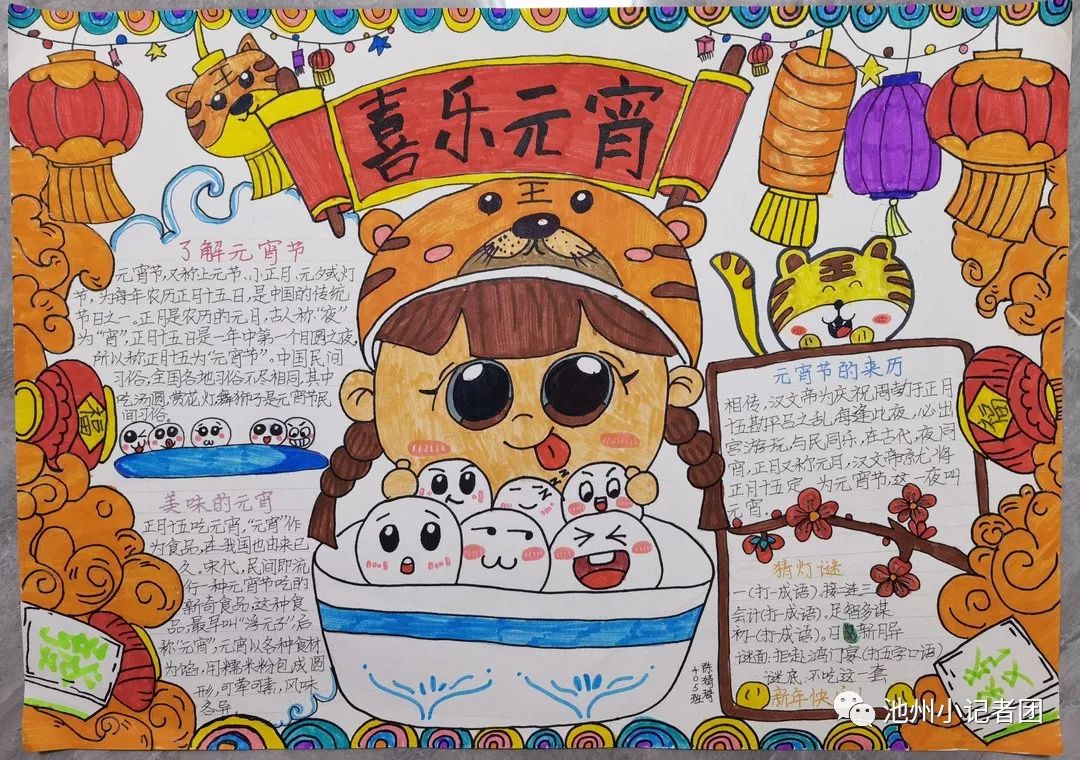 喜乐元宵
王
王
王
了解元宵节
元宵节,又称上元节、小正月、元夕或灯
节,为每年农历正月十五日,是中国的传统
节日之一。正月是农历的元月,古人称“夜”
为“宵”,正月十五日是一年中第一个月圆之夜,
所以称正月十五为“元宵节”。中国民间
习俗,全国各地习俗不尽相同,其中
吃汤圆、赏花灯、舞狮子是元宵节民
间习俗。
福
美味的元宵
正月十五吃元宵,“元宵”作
为食品,在我国也由来已
久。宋代,民间即流
行一种元宵节吃的
新奇食品,这种食
品,最早叫“浮元子”后
称“元宵”,元宵以各种食材
为馅,用糯米粉包成圆
形,可荤可素,风味
各异。
元宵节的来历
相传,汉文帝为庆祝周勃于正月
十五勘平吕之乱,每逢此夜,必出
宫游玩,与民同乐,在古代,夜同
宵,正月又称元月,汉文帝就将
正月十五定为元宵节,这一夜叫
元宵。
福
猜灯谜
一(打一成语),接二连三
会计(打一成语)。足智多谋
初一(打一成语)。日新月异
谜面:拒赴鸿门宴(打五字口语)
谜底:不吃这一套
新年快
405班
池州小记者团